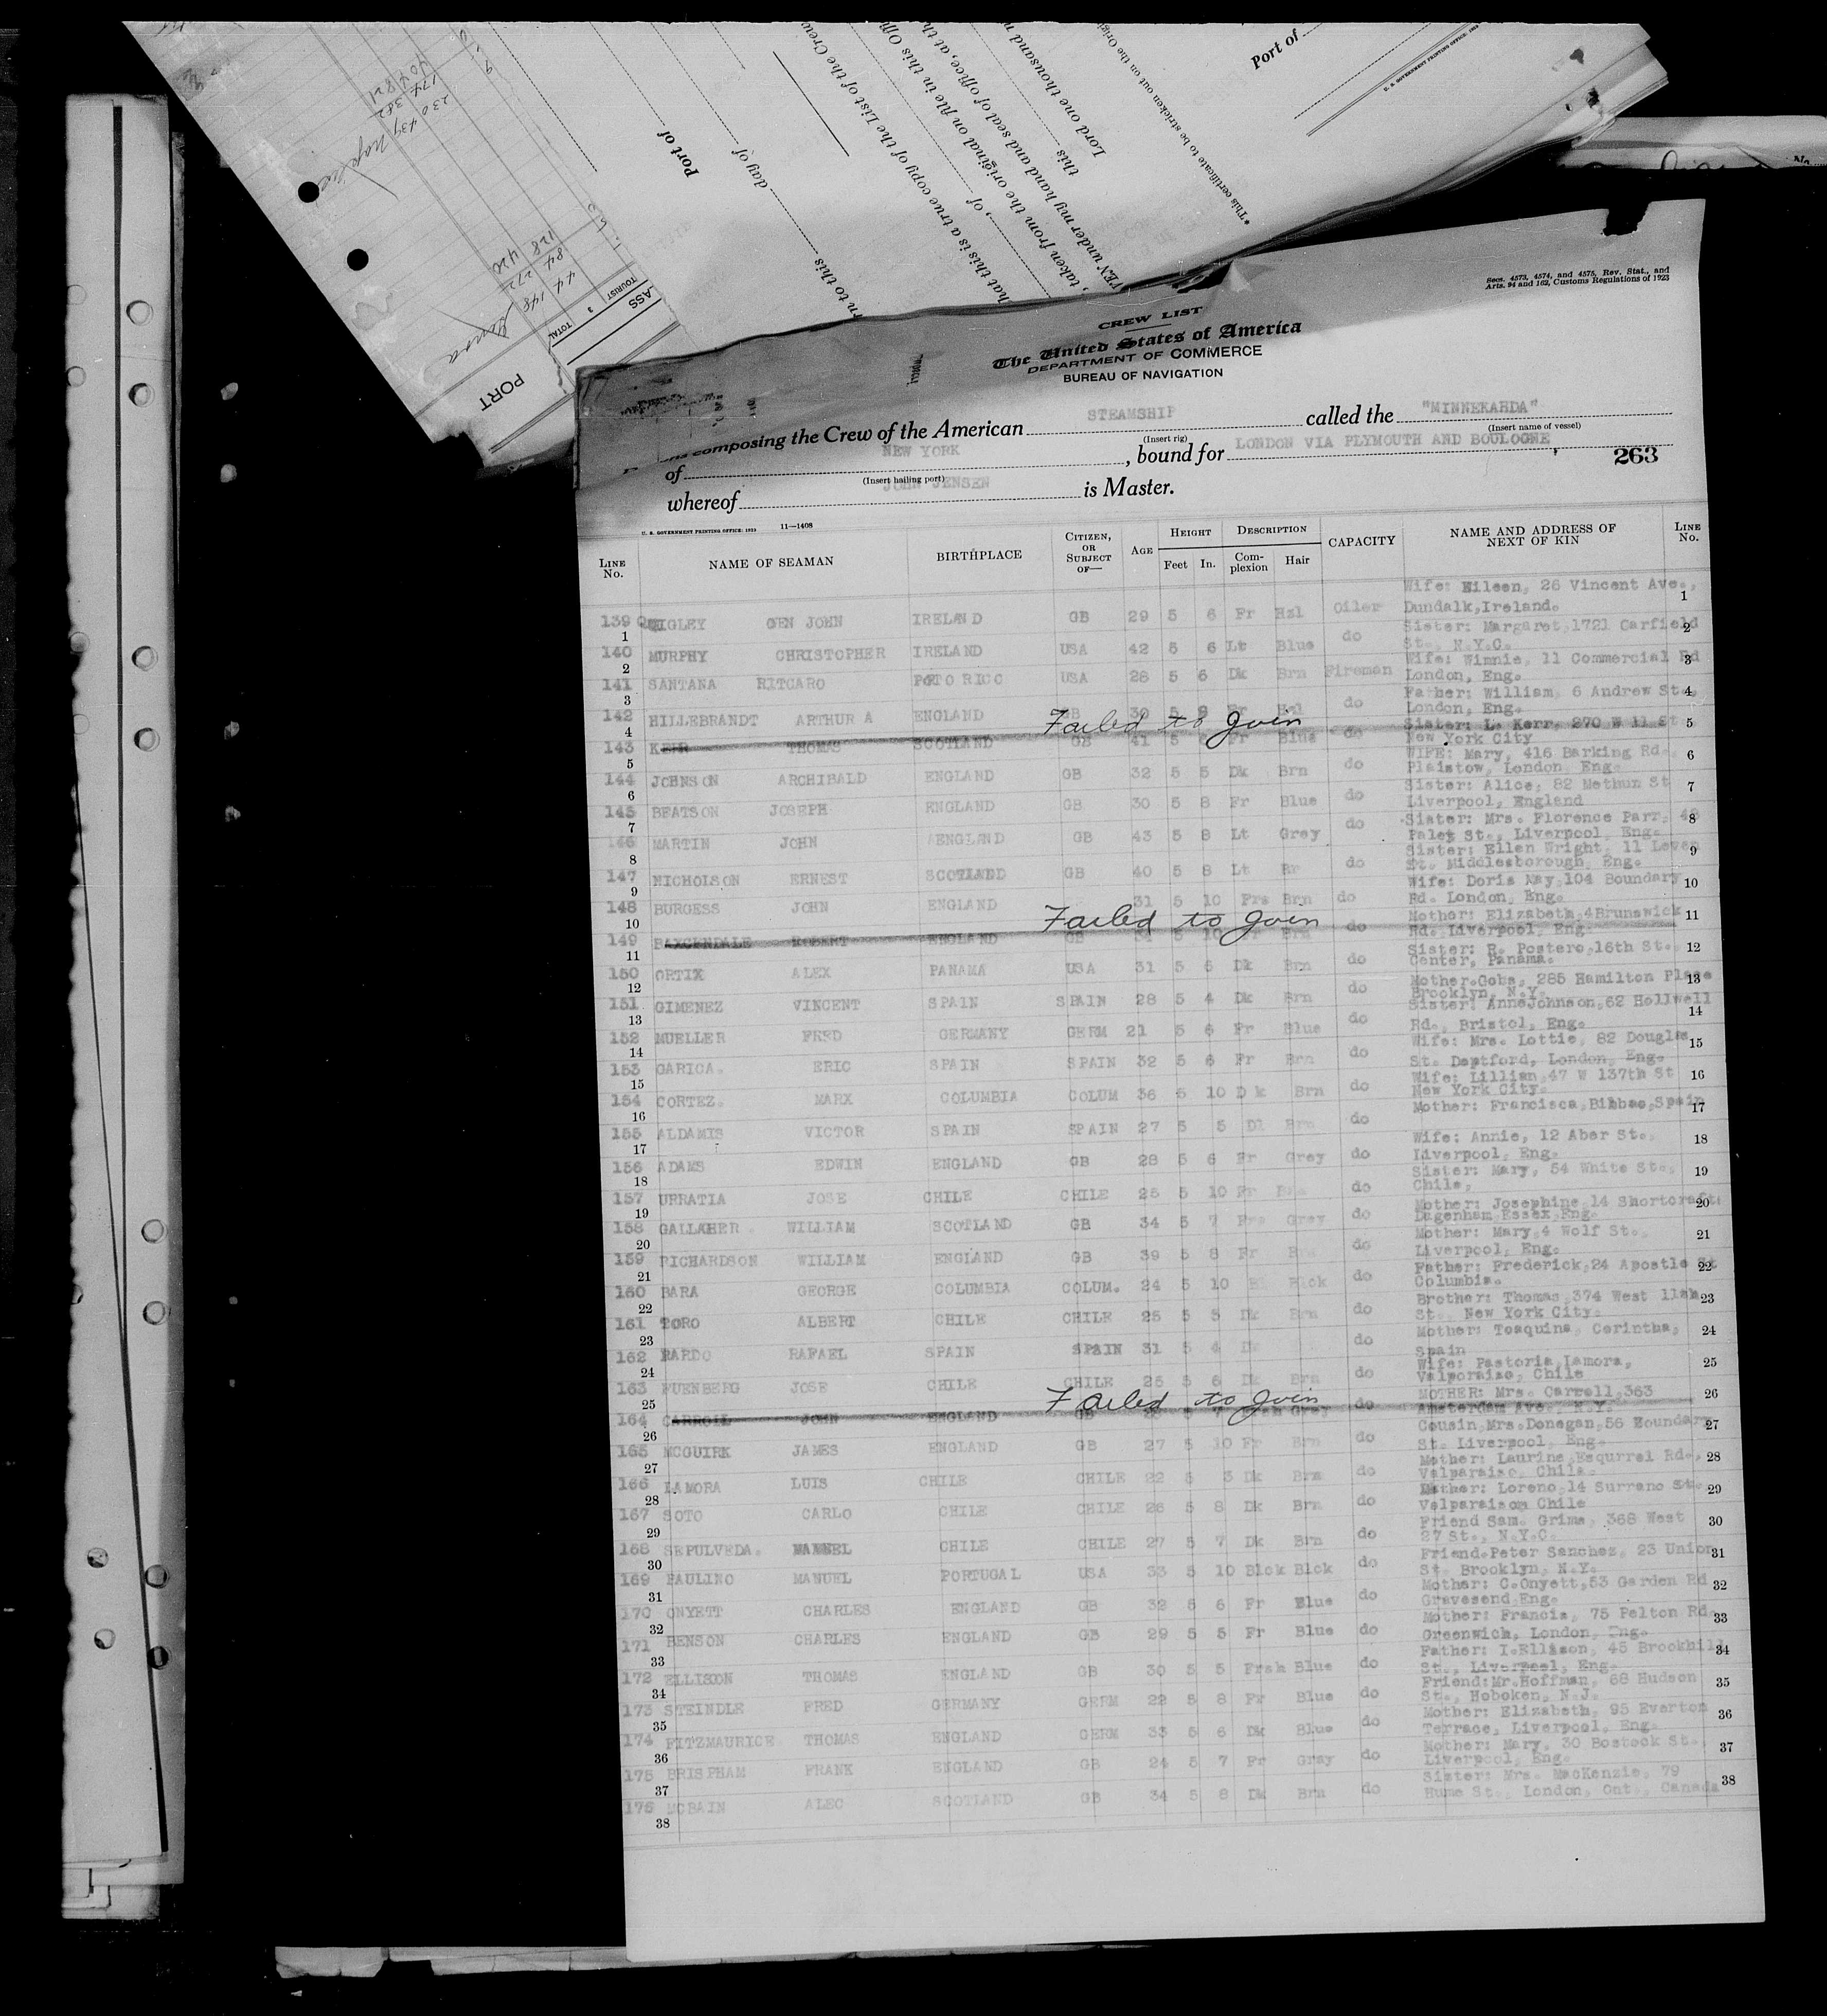 Port of
U. S. GOVERNMENT PRINTING OFFICE
*This certificate to be stricken out on the
Lord one thousand
this
my hand and seal of office, at
taken from the original on file in this
hat this is a true copy of the List of the Crew
, of
day of
Port of
rn to this
230 439 Naples
174 382
PORT
ASS
TOURIST
3
TOTAL
84 272
128 420
44 148
Secs. 4573, 4574, and 4575, Rev. Stat., and
Arts. 94 and 162, Customs Regulations of 1923
CREW LIST
The United States of America
DEPARTMENT OF COMMERCE
BUREAU OF NAVIGATION
composing the Crew of the American STEAMSHIP called the "MINNEKAHDA"
(Insert rig) (Insert name of vessel)
of NEW YORK, bound for LONDON VIA PLYMOUTH AND BOULOGNE,
(Insert hailing port) 263
whereof JOHN JENSEN is Master.
U. S. GOVERNMENT PRINTING OFFICE: 1923 11—1408
LINE No. NAME OF SEAMAN BIRTHPLACE CITIZEN, OR SUBJECT OF— AGE HEIGHT Feet In. DESCRIPTION Complexion Hair CAPACITY NAME AND ADDRESS OF NEXT OF KIN LINE No.
Wife: Eileen, 26 Vincent Ave.,
139 QUIGLEY OEN JOHN IRELAND GB 29 5 6 Fr Hzl Oiler Dundalk,Ireland. 1
1 Sister: Margaret,1721 Garfield
140 MURPHY CHRISTOPHER IRELAND USA 42 5 6 Lt Blue do St., N.Y.C. 2
2 Wife: Winnie, 11 Commercial Rd
141 SANTANA RITCARO PORTO RICO USA 28 5 6 Dk Brn Fireman London, Eng. 3
3 Father: William, 6 Andrew St.,
142 HILLEBRANDT ARTHUR A ENGLAND GB 30 5 9 Fr Hzl do London, Eng. 4
Failed to join
4 Sister: L. Kerr, 270 W 11 St
143 KERR THOMAS SCOTLAND GB 41 5 6 Fr Blue do New York City 5
5 WIFE: Mary, 416 Barking Rd.
144 JOHNSON ARCHIBALD ENGLAND GB 32 5 5 Dk Brn do Plaistow, London Eng. 6
6 Sister: Alice, 82 Methun St
145 BEATSON JOSEPH ENGLAND GB 30 5 8 Fr Blue do Liverpool, England 7
7 Sister: Mrs. Florence Parr, 48
146 MARTIN JOHN ENGLAND GB 43 5 8 Lt Grey do Paley St., Liverpool, Eng. 8
8 Sister: Ellen Wright, 11 Lower
147 NICHOLSON ERNEST SCOTLAND GB 40 5 8 Lt Br do St. Middlesborough, Eng. 9
9 Wife: Doris May,104 Boundary
148 BURGESS JOHN ENGLAND 31 5 10 Frs Brn do Rd. London, Eng. 10
Failed to join
10 Mother: Elizabeth,4Brunswick
149 BAXCENDALE ROBERT ENGLAND GB 34 5 10 Fr Brn do Rd. Liverpool, Eng. 11
11 Sister: R. Postero,16th St.
150 ORTIX ALEX PANAMA USA 31 5 6 Dk Brn do Center, Panama. 12
12 Mother.Goba, 285 Hamilton Place
151 GIMENEZ VINCENT SPAIN SPAIN 28 5 4 Dk Brn do Brooklyn, N.Y. 13
13 Sister: AnneJohnson,62 Hollwell
152 MUELLER FRED GERMANY GERM 21 5 6 Fr Blue do Rd., Bristol, Eng. 14
14 Wife: Mrs. Lottie, 82 Douglas
153 GARICA. ERIC SPAIN SPAIN 32 5 6 Fr Brn do St. Deptford, London, Eng. 15
15 Wife: Lillian,47 W 137th St
154 CORTEZ. MARX COLUMBIA COLUM 36 5 10 Dk Brn do New York City. 16
16 Mother: Francisca,Bilbao,Spain
155 ALDAMIS VICTOR SPAIN SPAIN 27 5 5 Dl Brn do 17
17 Wife: Annie, 12 Aber St.,
156 ADAMS EDWIN ENGLAND GB 28 5 6 Fr Grey do Liverpool, Eng. 18
18 Sister: Mary, 54 White St.,
157 URRATIA JOSE CHILE CHILE 25 5 10 Fr Brn do Chile, 19
19 Mother: Josephine,14 Shortcraft
158 GALLAGHER WILLIAM SCOTLAND GB 34 5 7 Frs Grey do Dagenham Essex,Eng. 20
20 Mother: Mary,4 Wolf St.,
159 RICHARDSON WILLIAM ENGLAND GB 39 5 8 Fr do Liverpool, Eng. 21
21 Father: Frederick,24 Apostle St
160 BARA GEORGE COLUMBIA COLUM. 24 5 10 Blck do Columbia. 22
22 Brother: Thomas,374 West 11th
161 TORO ALBERT CHILE CHILE 25 5 5 Dk Brn do St. New York City. 23
23 Mother: Toaquina, Corintha,
162 PARDO RAFAEL SPAIN SPAIN 31 5 4 Dk do Spain 24
24 Wife: Pastoria,Lamora,
163 FUENBERG JOSE CHILE CHILE 25 5 6 Dk Brn do Valporaise, Chile 25
Failed to join
25 MOTHER: Mrs. Carroll,363
164 CARROLL JOHN ENGLAND GB 5 7 Grey do Amsterdam Ave. N.Y. 26
26 Cousin,Mrs.Donegan,56 Boundary
165 MCGUIRK JAMES ENGLAND GB 27 5 10 Fr Brn do St. Liverpool, Eng. 27
27 Mother: Laurine,Esqurrei Rd.,
166 LAMORA LUIS CHILE CHILE 22 5 3 Dk Brn do Valparaise, Chile. 28
28 Mother: Loreno,14 Surrano St.
167 SOTO CARLO CHILE CHILE 26 5 8 Dk Brn do Valparaison Chile 29
29 Friend Sam. Grima, 368 West
168 SEPULVEDA. MANUEL CHILE CHILE 27 5 7 Dk Brn do 27 St., N.Y.C. 30
30 Friend.Peter Sanchez, 23 Union
169 PAULINO MANUEL PORTUGAL USA 33 5 10 Blck Blck do St. Brooklyn, N.Y. 31
31 Mother: C.Onyett,53 Garden Rd
170 ONYETT CHARLES ENGLAND GB 32 5 6 Fr Blue do Gravesend,Eng. 32
32 Mother: Francis, 75 Pelton Rd.
171 BENSON CHARLES ENGLAND GB 29 5 5 Fr Blue do Greenwich, London, Eng. 33
33 Father: I.Ellison, 45 Brookhill
172 ELLISON THOMAS ENGLAND GB 30 5 5 Frsh Blue do St., Liverpool, Eng. 34
34 Friend:Mr.Hoffman, 68 Hudson
173 STEINDLE FRED GERMANY GERM 22 5 8 Fr Blue do St., Hoboken, N.J. 35
35 Mother: Elizabeth, 95 Everton
174 FITZMAURICE THOMAS ENGLAND GERM 33 5 6 Dk Blue do Terrace, Liverpool, Eng. 36
36 Mother: Mary, 30 Bostock St.
175 BRISPHAM FRANK ENGLAND GB 24 5 7 Fr Gray do Liverpool, Eng. 37
37 Sister: Mrs. MacKenzie, 79
176 MCBAIN ALEC SCOTLAND GB 34 5 8 Dk Brn do Hume St., London, Ont., Canada 38
38